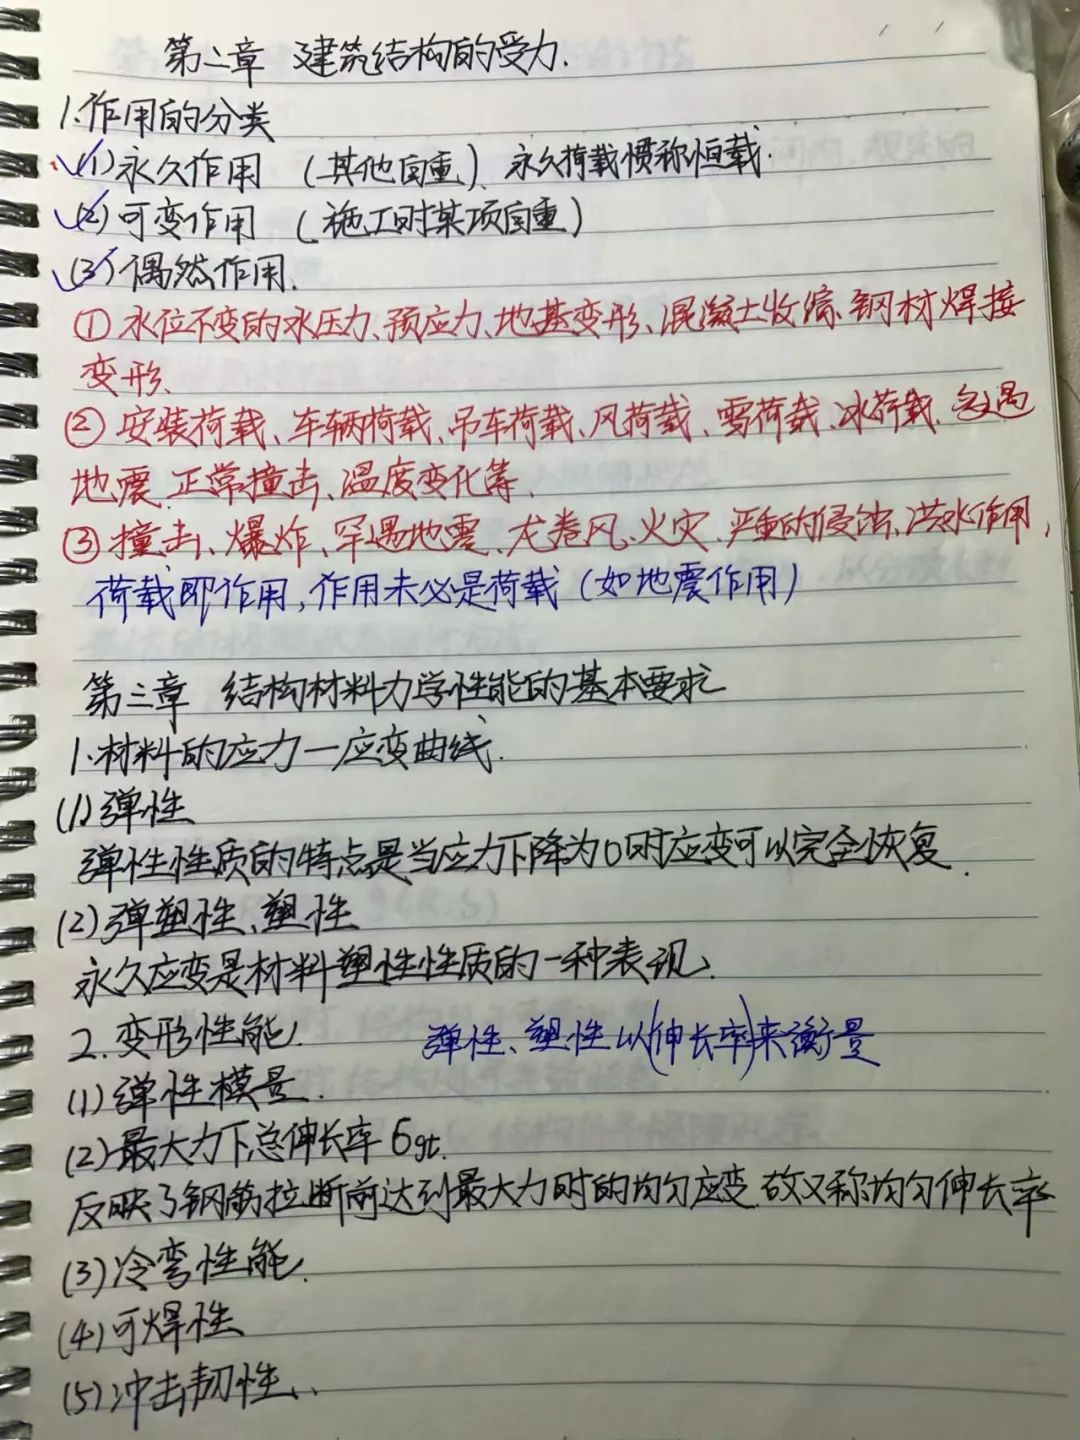 第二章 建筑结构的受力.
1.作用的分类
(1)永久作用 (其他自重)、永久荷载惯称恒载.
(2)可变作用 (施工时某项自重)
(3)偶然作用.
①水位不变的水压力、预应力、地基变形、混凝土收缩、钢材焊接
变形、
②安装荷载、车辆荷载、吊车荷载、风荷载、雪荷载、冰荷载、多遇
地震、正常撞击、温度变化等.
③撞击、爆炸、罕遇地震、龙卷风、火灾、严重的侵蚀、洪水作用,
荷载即作用,作用未必是荷载(如地震作用)
第三章 结构材料力学性能的基本要求
1.材料的应力—应变曲线.
(1)弹性
弹性性质的特点是当应力下降为0时应变可以完全恢复.
(2)弹塑性、塑性
永久应变是材料塑性性质的一种表现.
2.变形性能. 弹性、塑性以(伸长率)来衡量
(1)弹性模量.
(2)最大力下总伸长率δgt.
反映了钢筋拉断前达到最大力时的均匀应变.故又称均匀伸长率
(3)冷弯性能.
(4)可焊性
(5)冲击韧性.